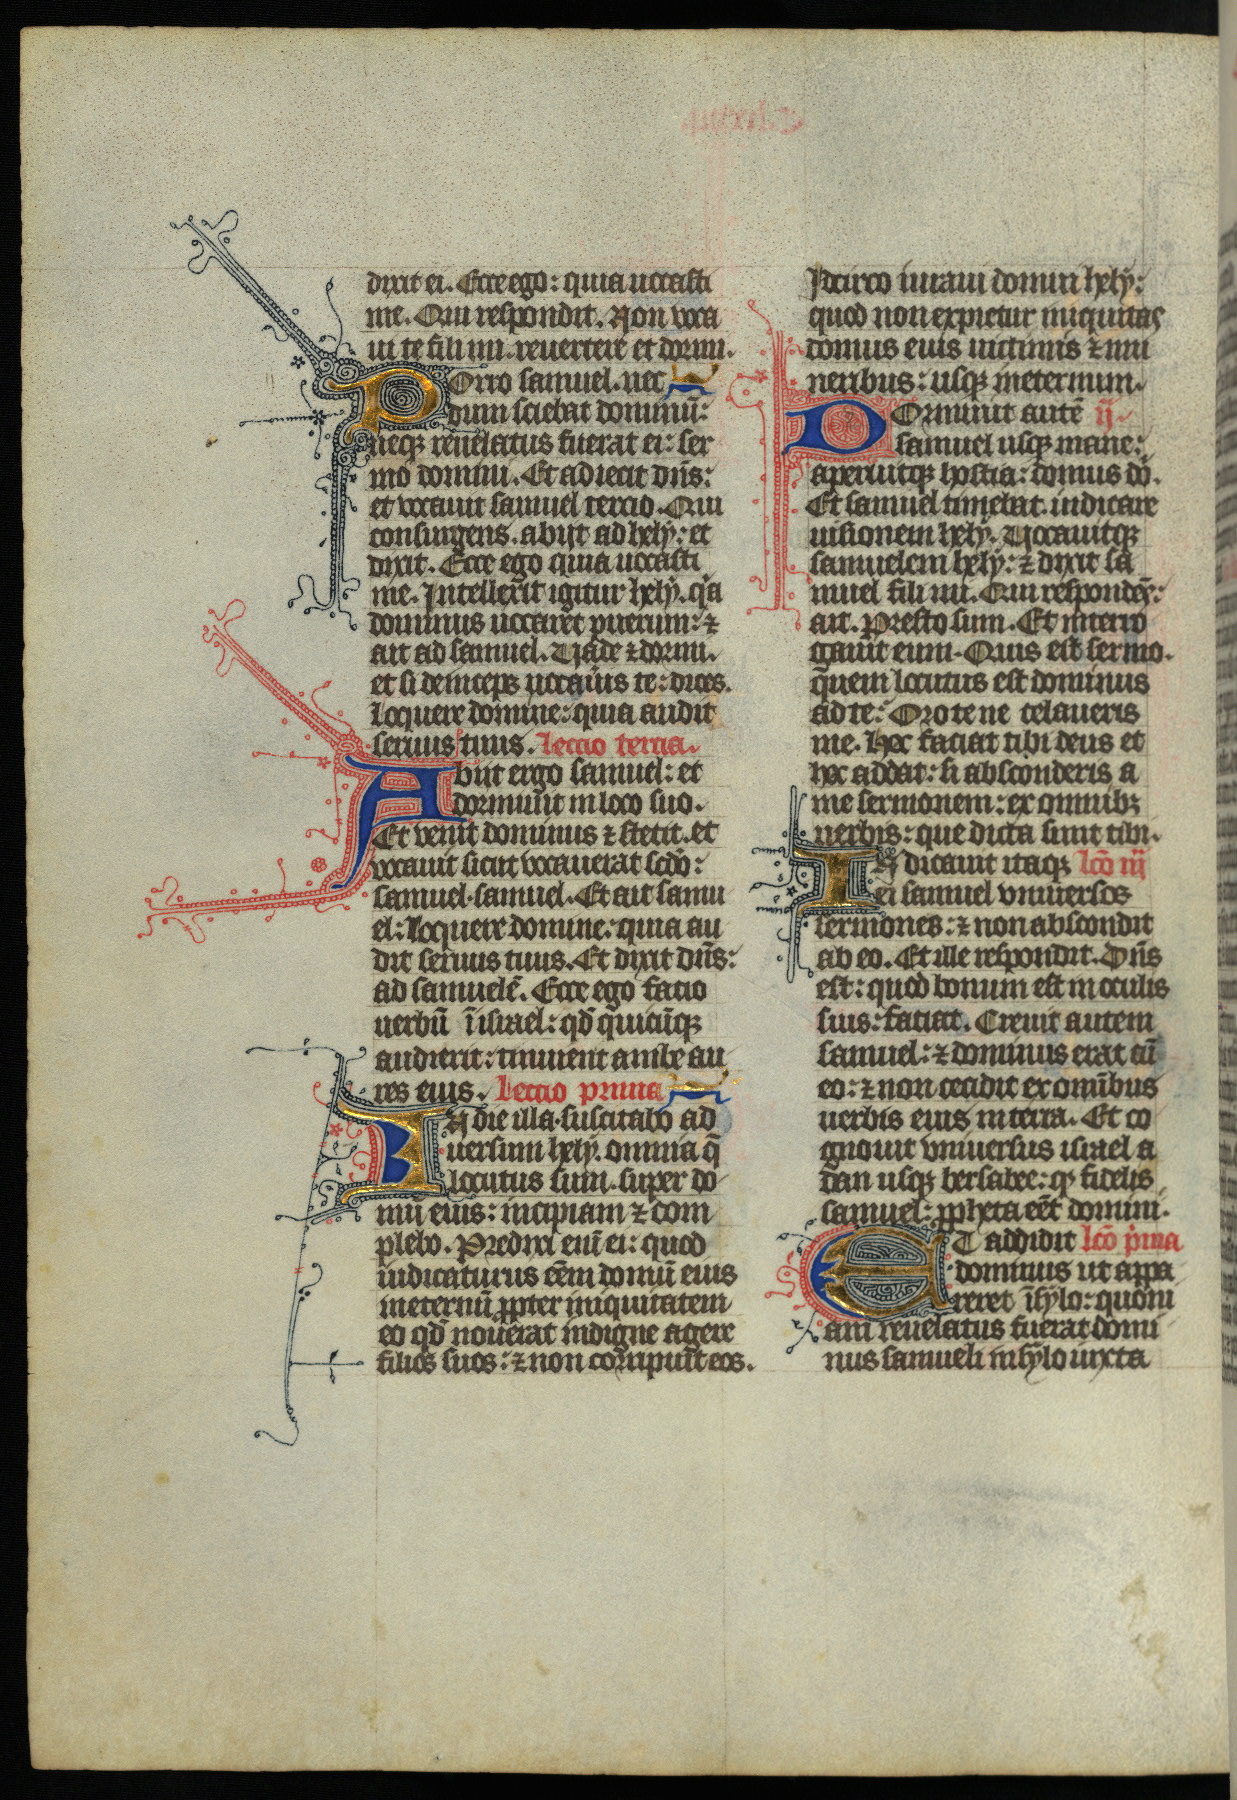 dixit ei. Ecce ego: quia uocasti
me. Qui respondit. Non voca
ui te fili mi. reuertere et dormi.
Porro samuel. nec
dum sciebat dominū:
neqꝫ reuelatus fuerat ei: ser
mo domini. Et adiecit dn̄s:
et vocauit samuel tercio. Qui
consurgens. abijt ad hely: et
dixit. Ecce ego quia uocasti
me. Intellexit igitur hely. qͣa
dominus uocaret puerum: ⁊
ait ad samuel. Vade ⁊ dormi.
et si deinceps uocauīs te: dices.
loquere domine: quia audit
seruus tuus. lectio tercia.
Abijt ergo samuel: et
dormiuit in loco suo.
Et venit dominus ⁊ stetit. et
vocauit sicut vocauerat scdō:
samuel. samuel. Et ait samu
el: loquere domine: quia au
dit seruus tuus. Et dixit dn̄s:
ad samuelē. Ecce ego facio
uerbū ī israel: qd̄ quicūqꝫ
audierit: tinnient ambe au
res eius. lectio prima
In die illa. suscitabo ad
uersum hely. omnia q̄
locutus sum. super do
mū eius: incipiam ⁊ com
plebo. Predixi eī ei: quod
iudicaturus eēm domū eius
ineternū ꝓpter iniquitatem
eo qd̄ nouerat indigne agere
filios suos: ⁊ non corripuīt eos.
Idcirco iuraui domui hely:
quod non expietur iniquitas
domus eius uictimis ⁊ mu
neribus: usqꝫ ineternum.
Dormiuit autē ij.
samuel usqꝫ mane:
aperuitqꝫ hostia: domus dō.
Et samuel timebat. indicare
uisionem hely. Vocauitqꝫ
samuelem hely: ⁊ dixit sa
muel fili mi. Qui respondēs:
ait. Presto sum. Et interro
gauit eum. Quis est sermo.
quem locutus est dominus
ad te: Oro te ne celaueris
me. Hec faciat tibi deus et
hec addat: si absconderis a
me sermonem: ex omnibꝫ
uerbis: que dicta sunt tibi.
Indicauit itaqꝫ lcō iij
ei samuel vniuersos
sermones: ⁊ non abscondit
ab eo. Et ille respondit. Dn̄s
est: quod bonum est in oculis
suis: faciat. Creuit autem
samuel: ⁊ dominus erat cū
eo: ⁊ non cecidit ex omībus
uerbis eius in terra. Et co
gnouit vniuersus israel a
dan usqꝫ bersabee: qꝫ fidelis
samuel: ꝓpheta eēt domini.
Et addidit lcō pͥma
dominus ut appa
reret ī sylo: quoni
am reuelatus fuerat domi
nus samueli in sylo iuxta